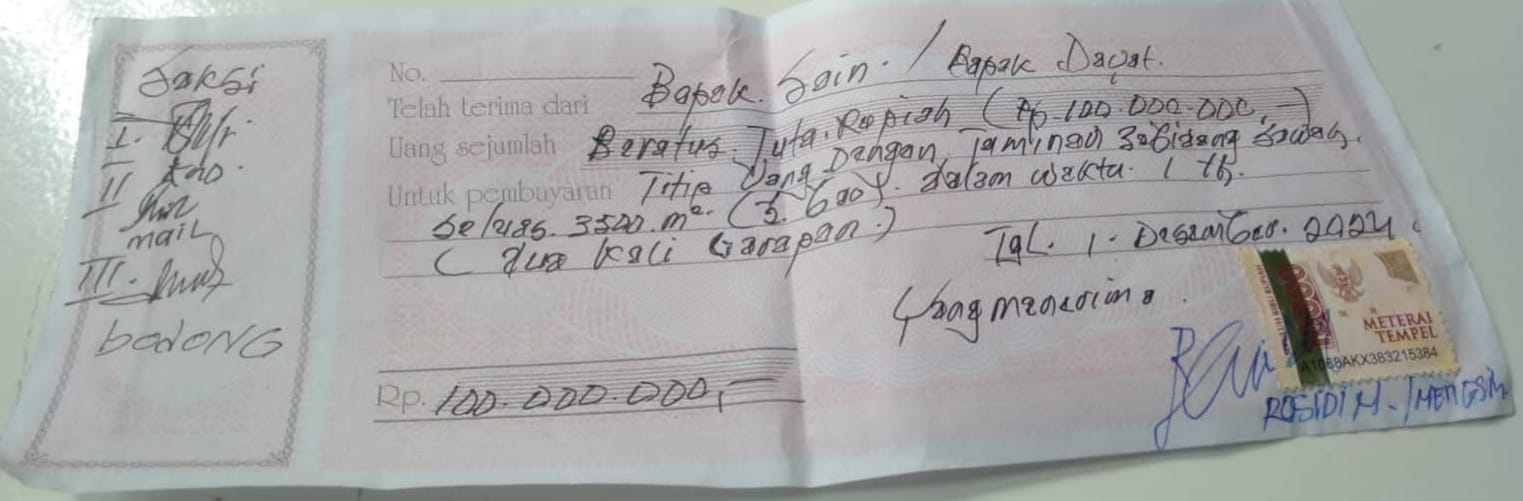 Saksi
I.
II
mail
III.
bodong
No.
Telah terima dari Bapak. Sain. / Bapak Dayat.
Uang sejumlah Seratus. Juta. Rupiah (Rp. 100.000.000,-)
Untuk pembayaran Titip Uang Dengan Jaminan Sebidang Sawah.
Seluas. 3500. m². dalam waktu. 1 th.
( dua kali Garapan.)
Tgl. 1. Desember. 2024
Yang menerima.
Rp. 100.000.000,-
METERAI
TEMPEL
A1068AKX383215384
ROSIDI M. /